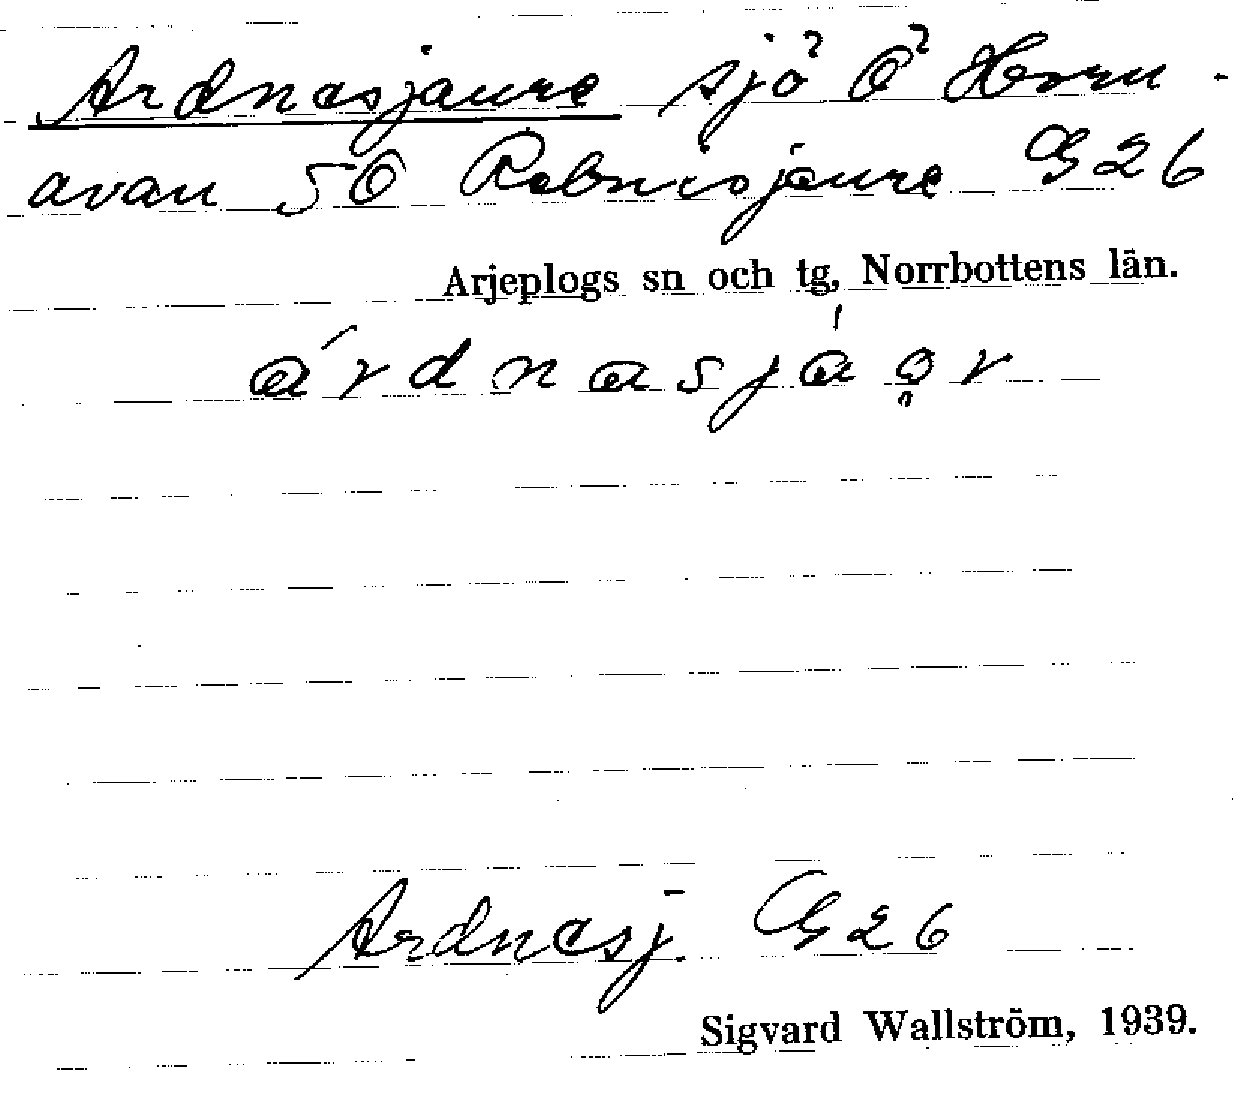 Ardnasjaure sjö Ö Horn-
avan SO Rebnisjaure G 26
Arjeplogs sn och tg, Norrbottens län.
árdnasjáo̭r
Ardnasj. G 26
Sigvard Wallström, 1939.